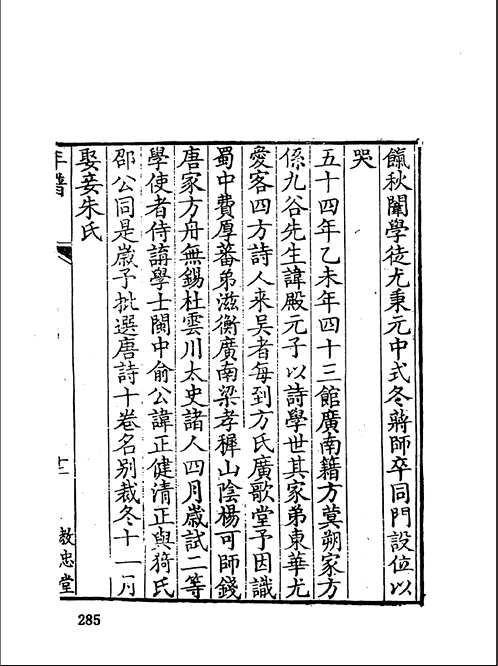 餼秋闈學徒尤秉元中式冬蔣師卒同門設位以
哭
五十四年乙未年四十三館廣南籍方蓂朔家方
係九谷先生諱殿元子以詩學世其家弟東華尤
愛客四方詩人來吳者每到方氏廣歌堂予因識
蜀中費厚蕃弟滋衡廣南梁孝穉山陰楊可師錢
唐家方舟無錫杜雲川太史諸人四月歲試二等
學使者侍講學士閩中俞公諱正健清正與猗氏
邵公同是歲予批選唐詩十卷名別裁冬十一月
娶妾朱氏
年譜
十二
教忠堂
285